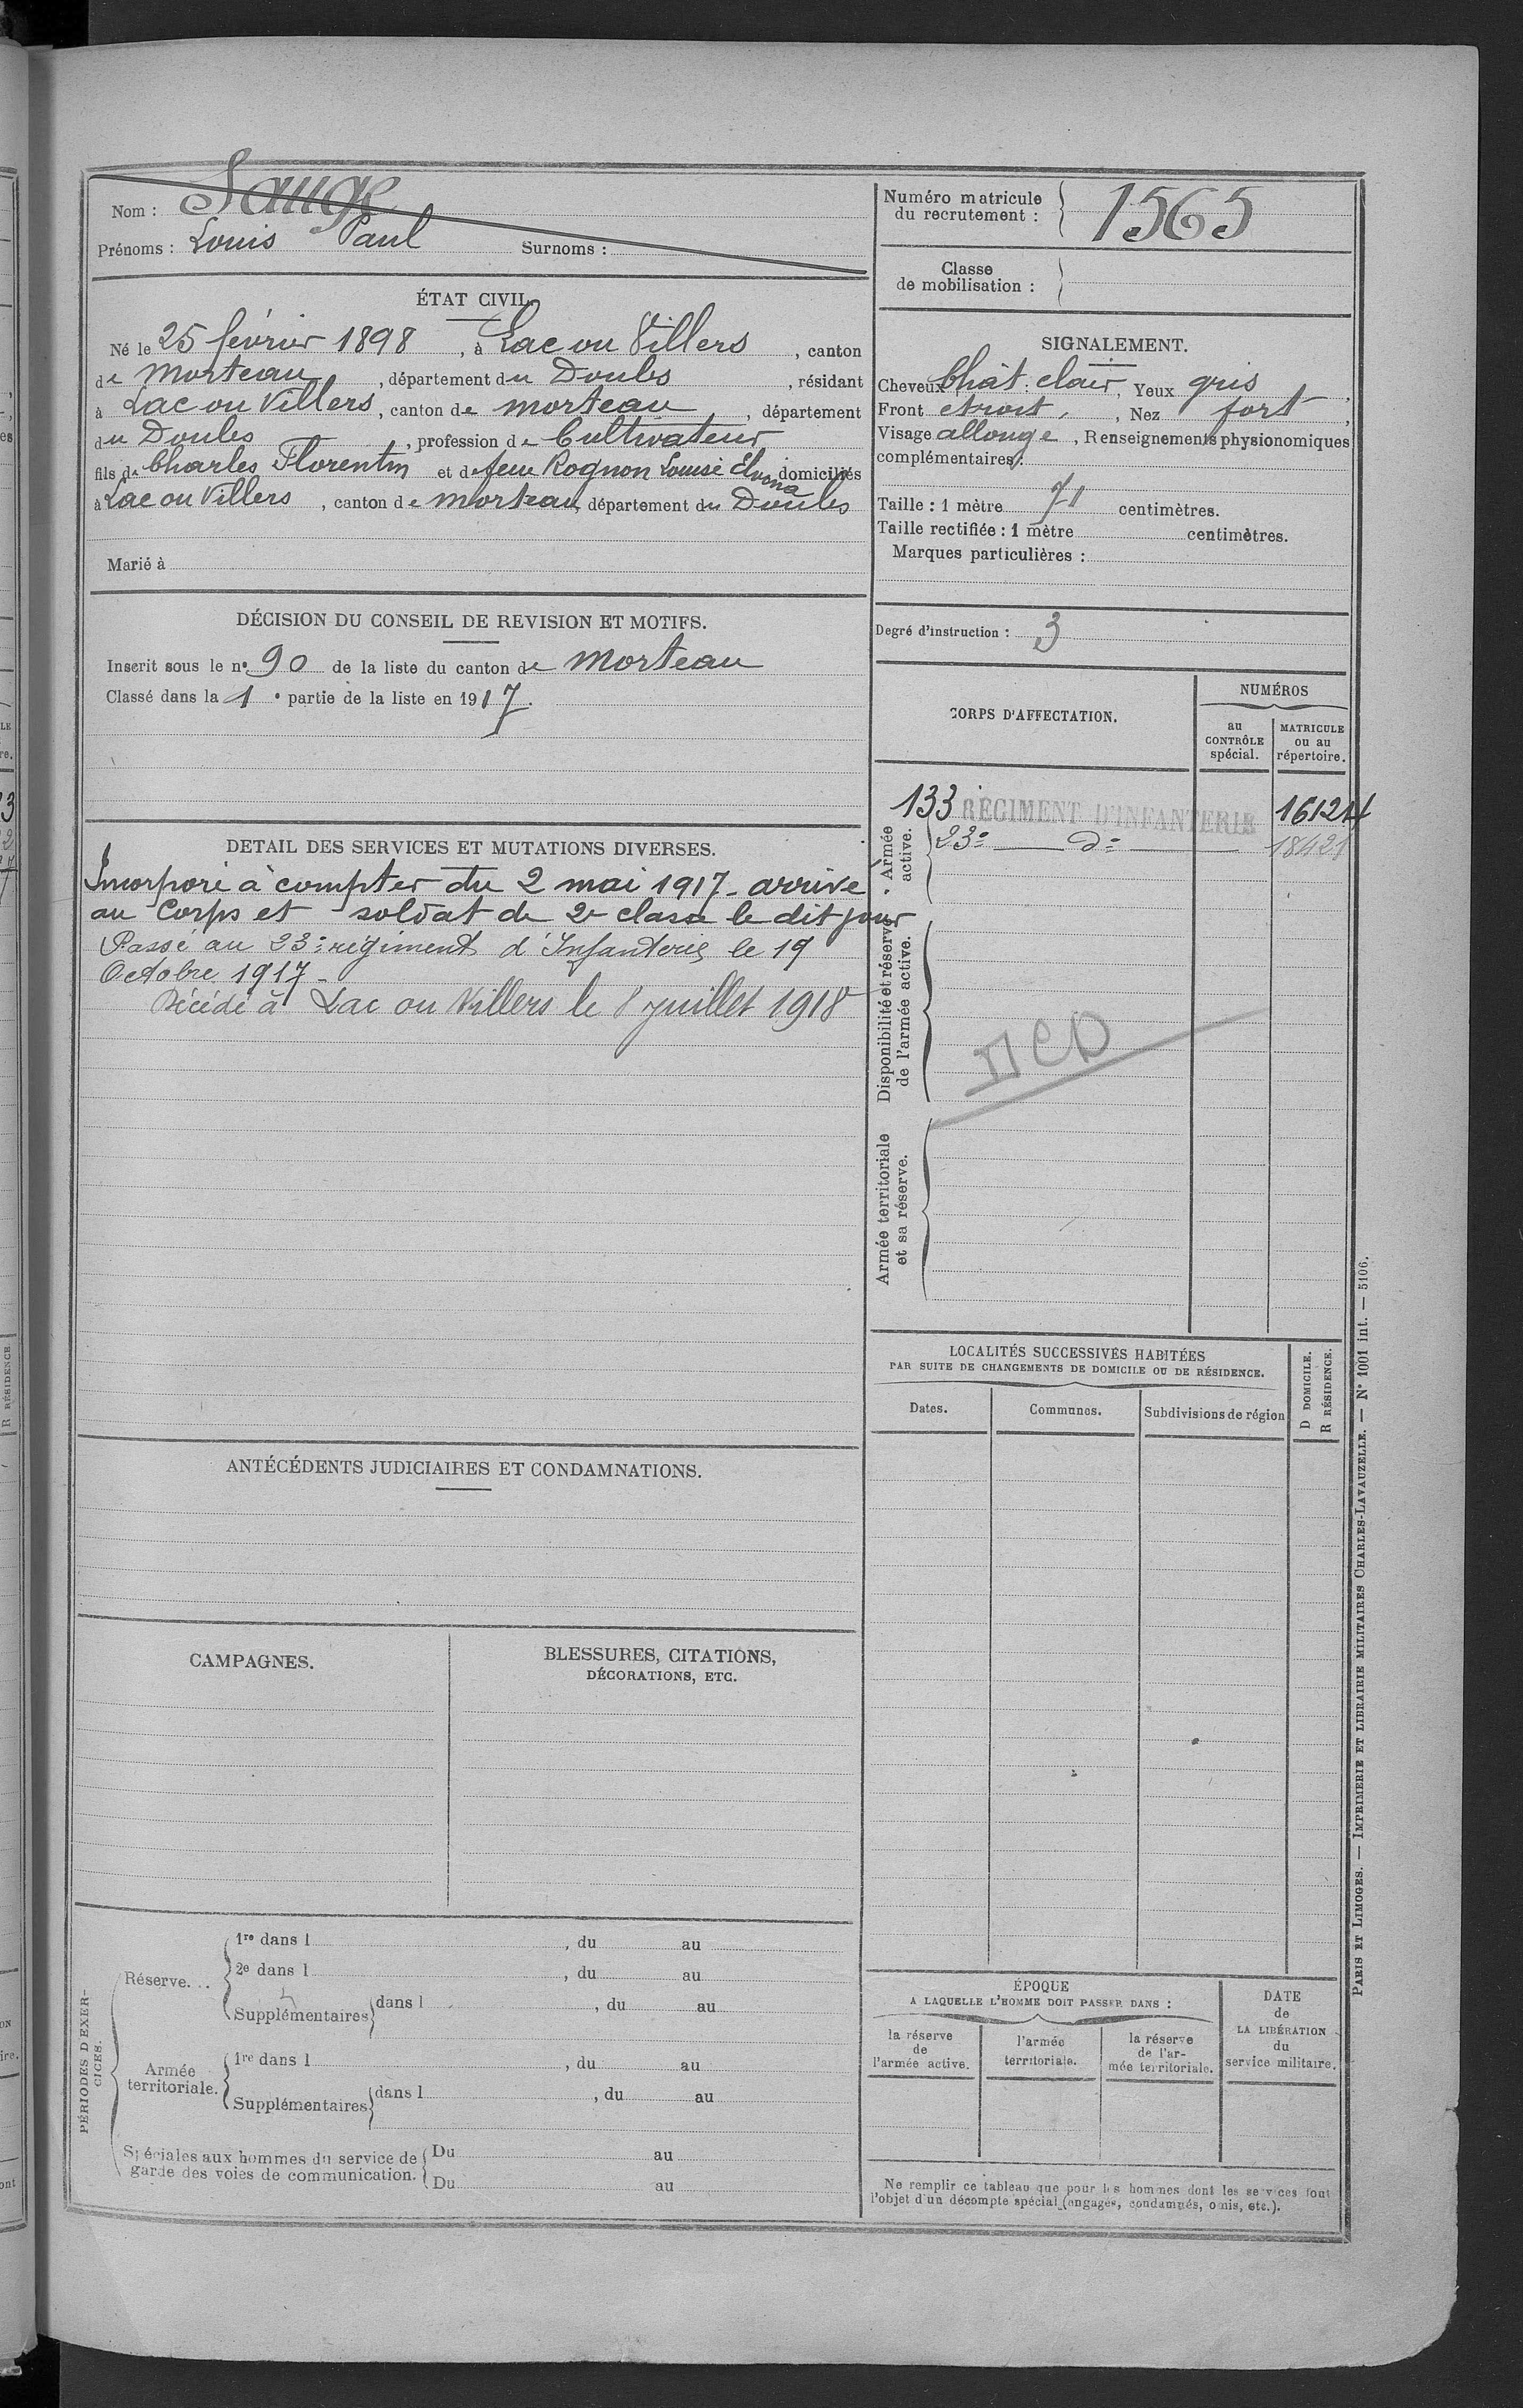 Nom : Sauge
Prénoms : Louis Paul Surnoms :
ÉTAT CIVIL.
Né le 25 février 1898, à Lac ou Villers, canton
de Morteau, département du Doubs, résidant
à Lac ou Villers, canton de Morteau, département
du Doubs, profession de Cultivateur
fils de Charles Florentin et de feue Rognon Louise Elvona domiciliés
à Lac ou Villers, canton de Morteau, département du Doubs
Marié à
DÉCISION DU CONSEIL DE REVISION ET MOTIFS.
Inscrit sous le n° 90 de la liste du canton de Morteau
Classé dans la 1e partie de la liste en 1917.
DETAIL DES SERVICES ET MUTATIONS DIVERSES.
Incorporé à compter du 2 mai 1917 - arrivé
au Corps et soldat de 2e classe le dit jour
Passé au 23e régiment d'Infanterie le 19
Octobre 1917 -
Décédé à Lac ou Villers le 8 juillet 1918
ANTÉCÉDENTS JUDICIAIRES ET CONDAMNATIONS.
CAMPAGNES.
BLESSURES, CITATIONS,
DÉCORATIONS, ETC.
PÉRIODES D'EXER-
CICES.
Réserve...
1re dans l , du au
2e dans l , du au
Supplémentaires dans l , du au
Armée
territoriale.
1re dans l , du au
Supplémentaires dans l , du au
Spéciales aux hommes du service de
garde des voies de communication.
Du au
Du au
Numéro matricule
du recrutement : 1565
Classe
de mobilisation :
SIGNALEMENT.
Cheveux Chât. clair, Yeux gris,
Front étroit, Nez fort,
Visage allongé, Renseignements physionomiques
complémentaires :
Taille : 1 mètre 71 centimètres.
Taille rectifiée : 1 mètre centimètres.
Marques particulières :
Degré d'instruction : 3
CORPS D'AFFECTATION.
NUMÉROS
au
CONTRÔLE
spécial.
MATRICULE
ou au
répertoire.
Armée
active.
133 RÉGIMENT D'INFANTERIE 16124
23e do 18421
Disponibilité et réserve
de l'armée active.
DCD
Armée territoriale
et sa réserve.
LOCALITÉS SUCCESSIVES HABITÉES
PAR SUITE DE CHANGEMENTS DE DOMICILE OU DE RÉSIDENCE.
Dates.
Communes.
Subdivisions de région
D DOMICILE.
R RÉSIDENCE.
ÉPOQUE
A LAQUELLE L'HOMME DOIT PASSER DANS :
la réserve
de
l'armée active.
l'armée
territoriale.
la réserve
de l'ar-
mée territoriale.
DATE
de
LA LIBÉRATION
du
service militaire.
Ne remplir ce tableau que pour les hommes dont les services font
l'objet d'un décompte spécial (engagés, condamnés, omis, etc.).
PARIS ET LIMOGES. — IMPRIMERIE ET LIBRAIRIE MILITAIRES CHARLES-LAVAUZELLE. — N° 1001 int. — 5106.